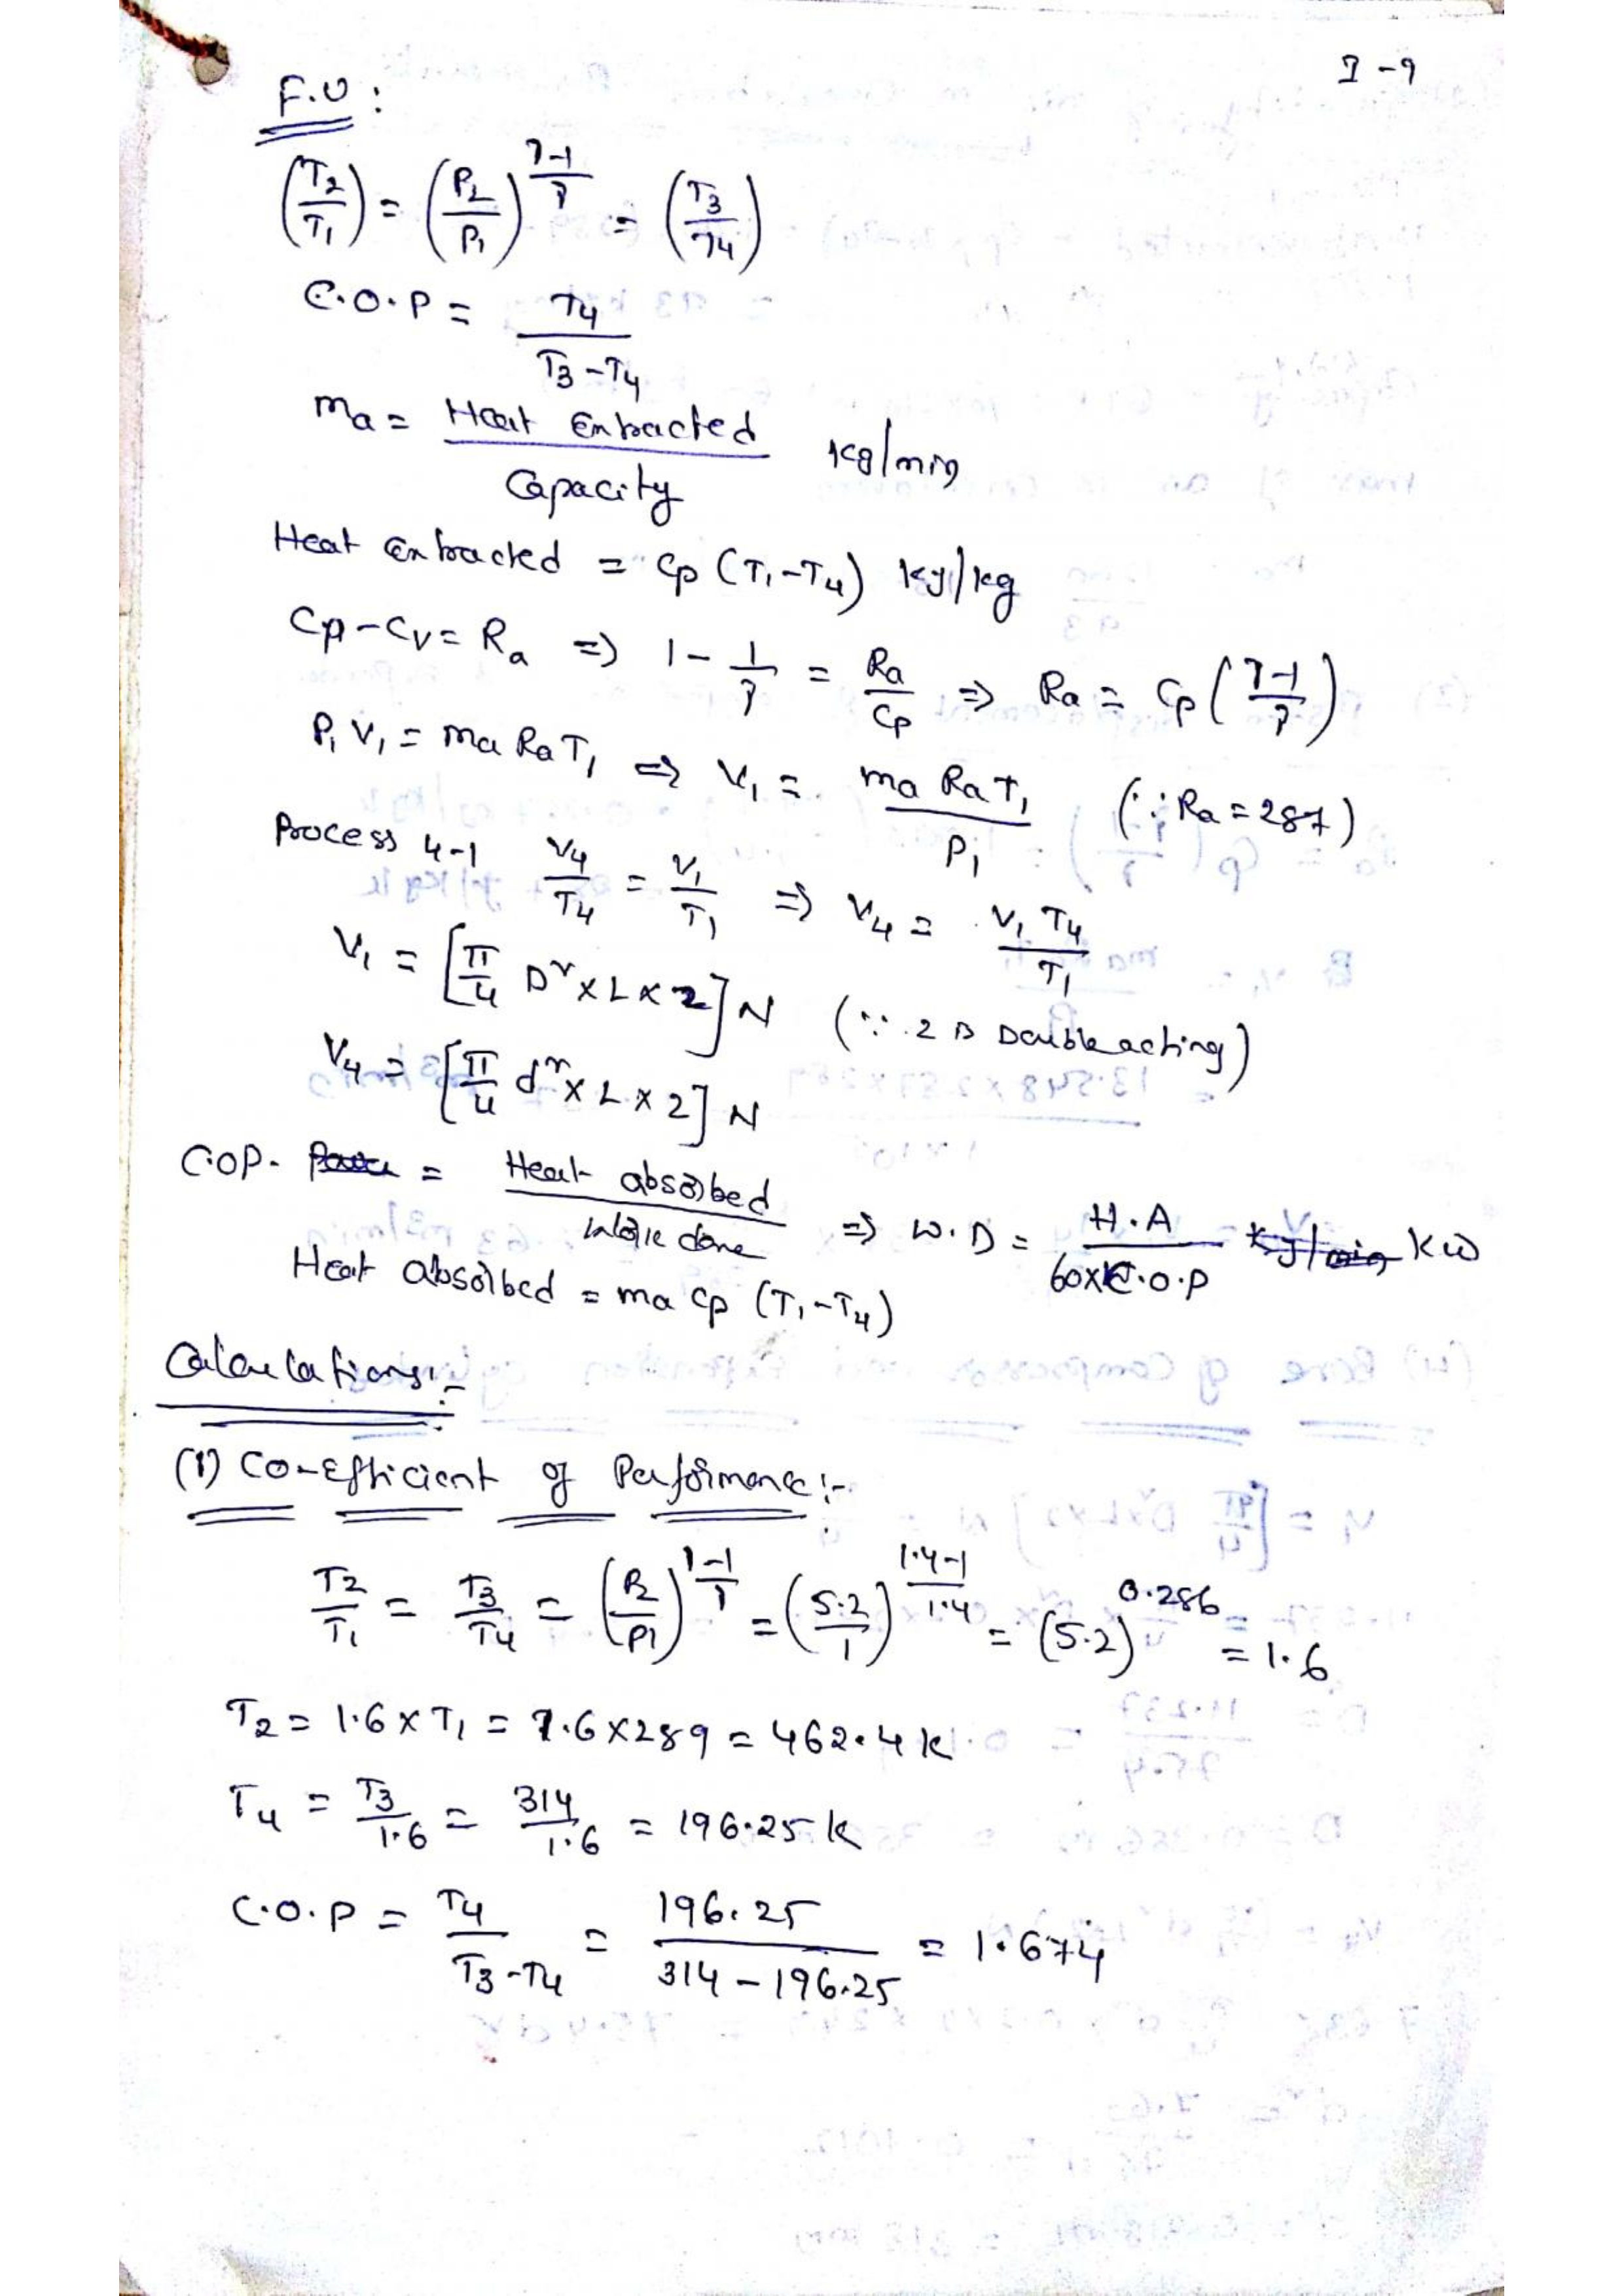 I-9
F.U :
(T2/T1) = (P2/P1)^(γ-1/γ) = (T3/T4)
C.O.P = T4/(T3-T4)
ma = Heat Extracted/Capacity kg/min
Heat Extracted = Cp (T1-T4) kJ/kg
Cp-Cv = Ra => 1 - 1/γ = Ra/Cp => Ra = Cp (γ-1/γ)
P1 V1 = ma Ra T1 => V1 = ma Ra T1/P1 (∵ Ra = 287)
Process 4-1 V4/T4 = V1/T1 => V4 = V1 T4/T1
V1 = [π/4 D² x L x 2] N (∵ 2 is Double acting)
V4 = [π/4 d² x L x 2] N
C.O.P. = Heat absorbed/Work done => W.D = H.A/(60xC.O.P) kJ/min kW
Heat absorbed = ma Cp (T1-T4)
Calculations:-
(1) Co-efficient of Performance:-
T2/T1 = T3/T4 = (P2/P1)^(γ-1/γ) = (5.2/1)^(1.4-1/1.4) = (5.2)^0.286 = 1.6
T2 = 1.6 x T1 = 1.6 x 289 = 462.4 k
T4 = T3/1.6 = 314/1.6 = 196.25 k
C.O.P = T4/(T3-T4) = 196.25/(314-196.25) = 1.674